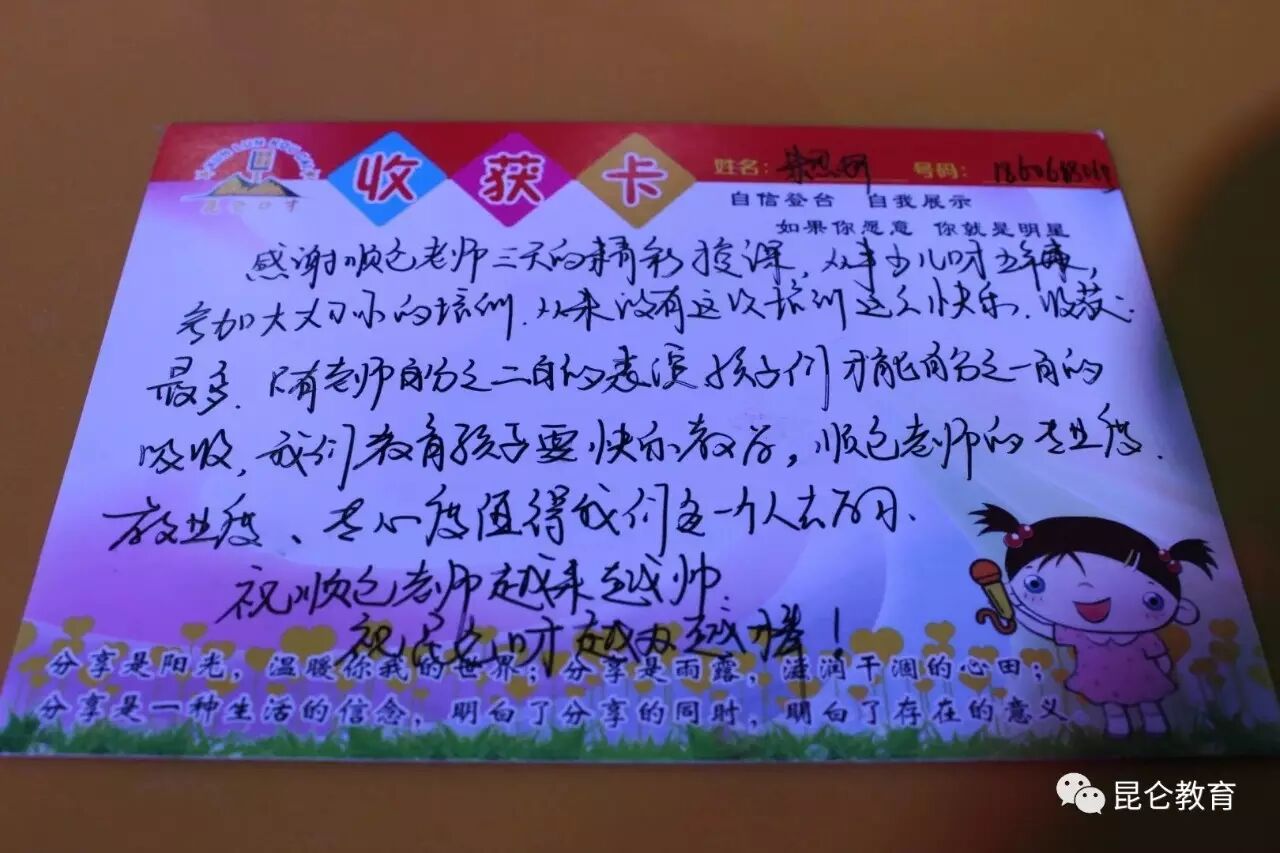 KUN LUN KOU CAI
昆仑口才
收获卡
姓名: 号码:
自信登台 自我展示
如果你愿意 你就是明星
感谢顺包老师三天的精彩授课,从事少儿口才五年来,
参加大大小小的培训.从来没有这次培训这么快乐.收获
最多.只有老师百分之二百的表演孩子们才能百分之一百的
吸收,我们教育孩子要快乐教学,顺包老师的专业度.
敬业度、专心度值得我们每一个人去历练.
祝顺包老师越来越帅.
祝昆仑口才越办越棒!
分享是阳光,温暖你我的世界;分享是雨露,滋润干涸的心田;
分享是一种生活的信念,明白了分享的同时,明白了存在的意义
昆仑教育